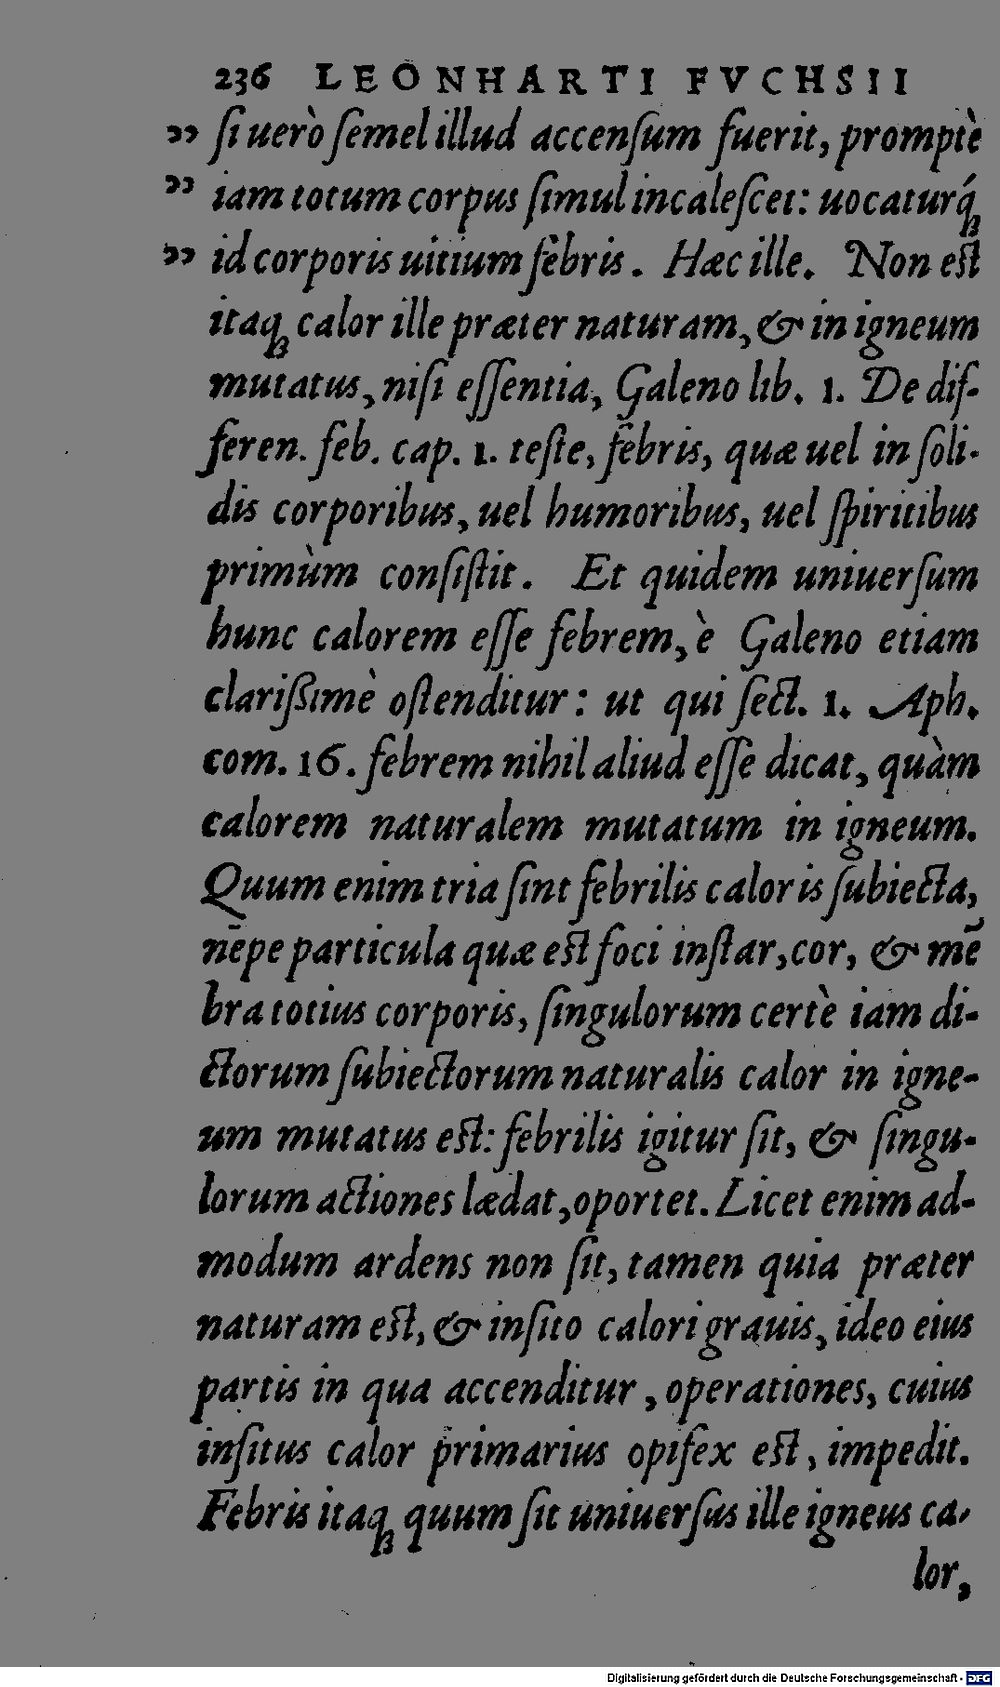 236 LEONHARTI FVCHSII
„ ſi uerò ſemel illud accenſum fuerit, promptè
„ iam totum corpus ſimul incaleſcet: uocaturq́ꝫ
„ id corporis uitium febris. Hæc ille. Non est
itaqꝫ calor ille præter naturam, & in igneum
mutatus, niſi eſſentia, Galeno lib. 1. De dif-
feren. feb. cap. 1. teſte, febris, quæ uel in ſoli-
dis corporibus, uel humoribus, uel ſpiritibus
primùm conſiſtit. Et quidem uniuerſum
hunc calorem eſſe febrem, è Galeno etiam
clarißimè oſtenditur: ut qui ſect. 1. Aph.
com. 16. febrem nihil aliud eſſe dicat, quàm
calorem naturalem mutatum in igneum.
Quum enim tria ſint febrilis caloris ſubiecta,
nẽpe particula quæ est foci inſtar, cor, & mẽ
bra totius corporis, ſingulorum certè iam di-
ctorum ſubiectorum naturalis calor in igne-
um mutatus est: febrilis igitur ſit, & ſingu-
lorum actiones lædat, oportet. Licet enim ad-
modum ardens non ſit, tamen quia præter
naturam est, & inſito calori grauis, ideo eius
partis in qua accenditur, operationes, cuius
inſitus calor primarius opifex est, impedit.
Febris itaqꝫ quum ſit uniuerſus ille igneus ca-
lor,
Digitalisierung gefördert durch die Deutsche Forschungsgemeinschaft - DFG